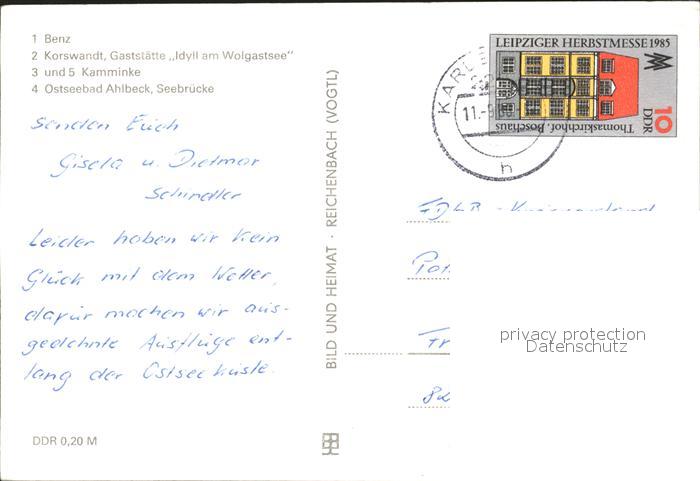 1 Benz
2 Korswandt, Gaststätte „Idyll am Wolgastsee"
3 und 5 Kamminke
4 Ostseebad Ahlbeck, Seebrücke
senden Euch
Gisela u. Dietmar
Schindler
Leider haben wir kein
Glück mit dem Wetter,
dafür machen wir aus-
gedehnte Ausflüge ent-
lang der Ostseeküste.
DDR 0,20 M
BILD UND HEIMAT · REICHENBACH (VOGTL)
LEIPZIGER HERBSTMESSE 1985
Thomaskirchhof, Bosehaus
10
DDR
11.-9
h
privacy protection
Datenschutz